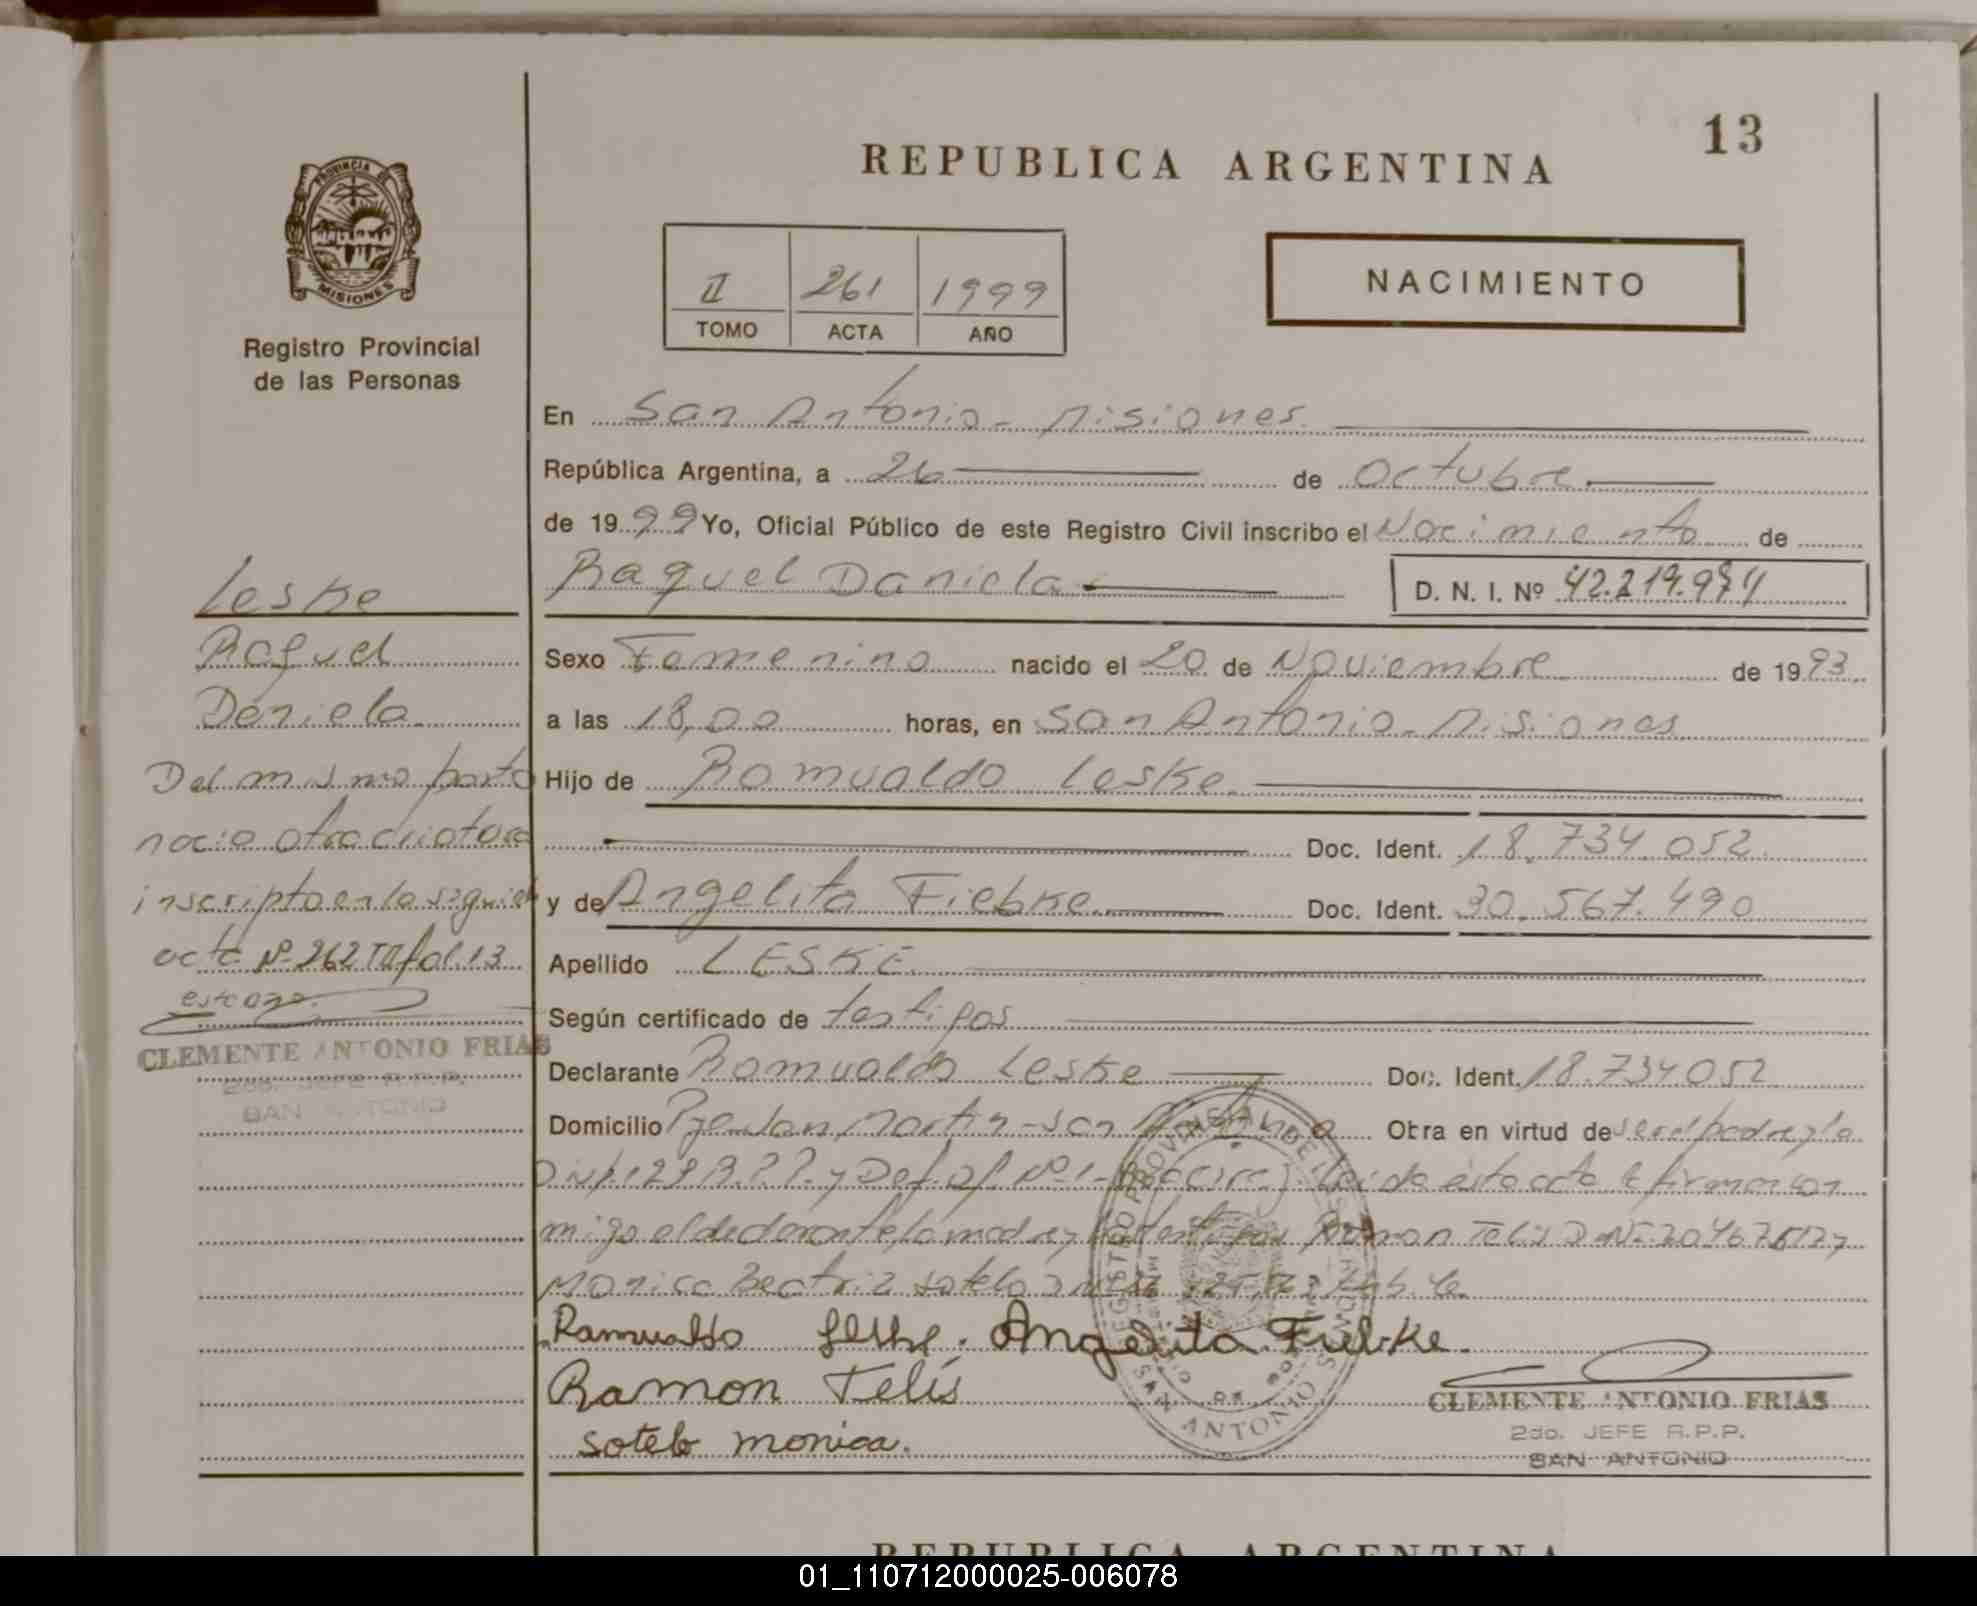 13
REPUBLICA ARGENTINA
PROVINCIA DE
MISIONES
Registro Provincial
de las Personas
II 261 1999
TOMO ACTA AÑO
NACIMIENTO
En San Antonio - Misiones
República Argentina, a 26 de Octubre
de 1999 Yo, Oficial Público de este Registro Civil inscribo el Nacimiento de
Raquel Daniela
D. N. I. Nº 42.219.974
Sexo Femenino nacido el 20 de Noviembre de 1993
a las 18,00 horas, en San Antonio - Misiones
Hijo de Romualdo Leske
Doc. Ident. 18.734.052
y de Angelita Fiebke Doc. Ident. 30.567.490
Apellido LESKE
Según certificado de testigos
Declarante Romualdo Leske Doc. Ident. 18.734052
Domicilio San Martin - San Antonio Obra en virtud de ser el padre y la
y Def. Of. Nº 1 - leida esta acta la firman con
migo el declarante, la madre y los testigos Ramon Telis
Monica Beatriz Sotelo
Ramualdo Leske. Angelita Fiebke.
Ramon Telis
sotelo monica.
CLEMENTE ANTONIO FRIAS
2do. JEFE R.P.P.
SAN ANTONIO
Leske
Raquel
Daniela
Del mismo parto
nacio otra criatura
inscripto en la siguiente
acta Nº 262 TII fol. 13
este año.
CLEMENTE ANTONIO FRIAS
2do. JEFE R.P.P.
SAN ANTONIO
REGISTRO PROVINCIAL DE LAS PERSONAS
SAN ANTONIO
REPUBLICA ARGENTINA
01_110712000025-006078